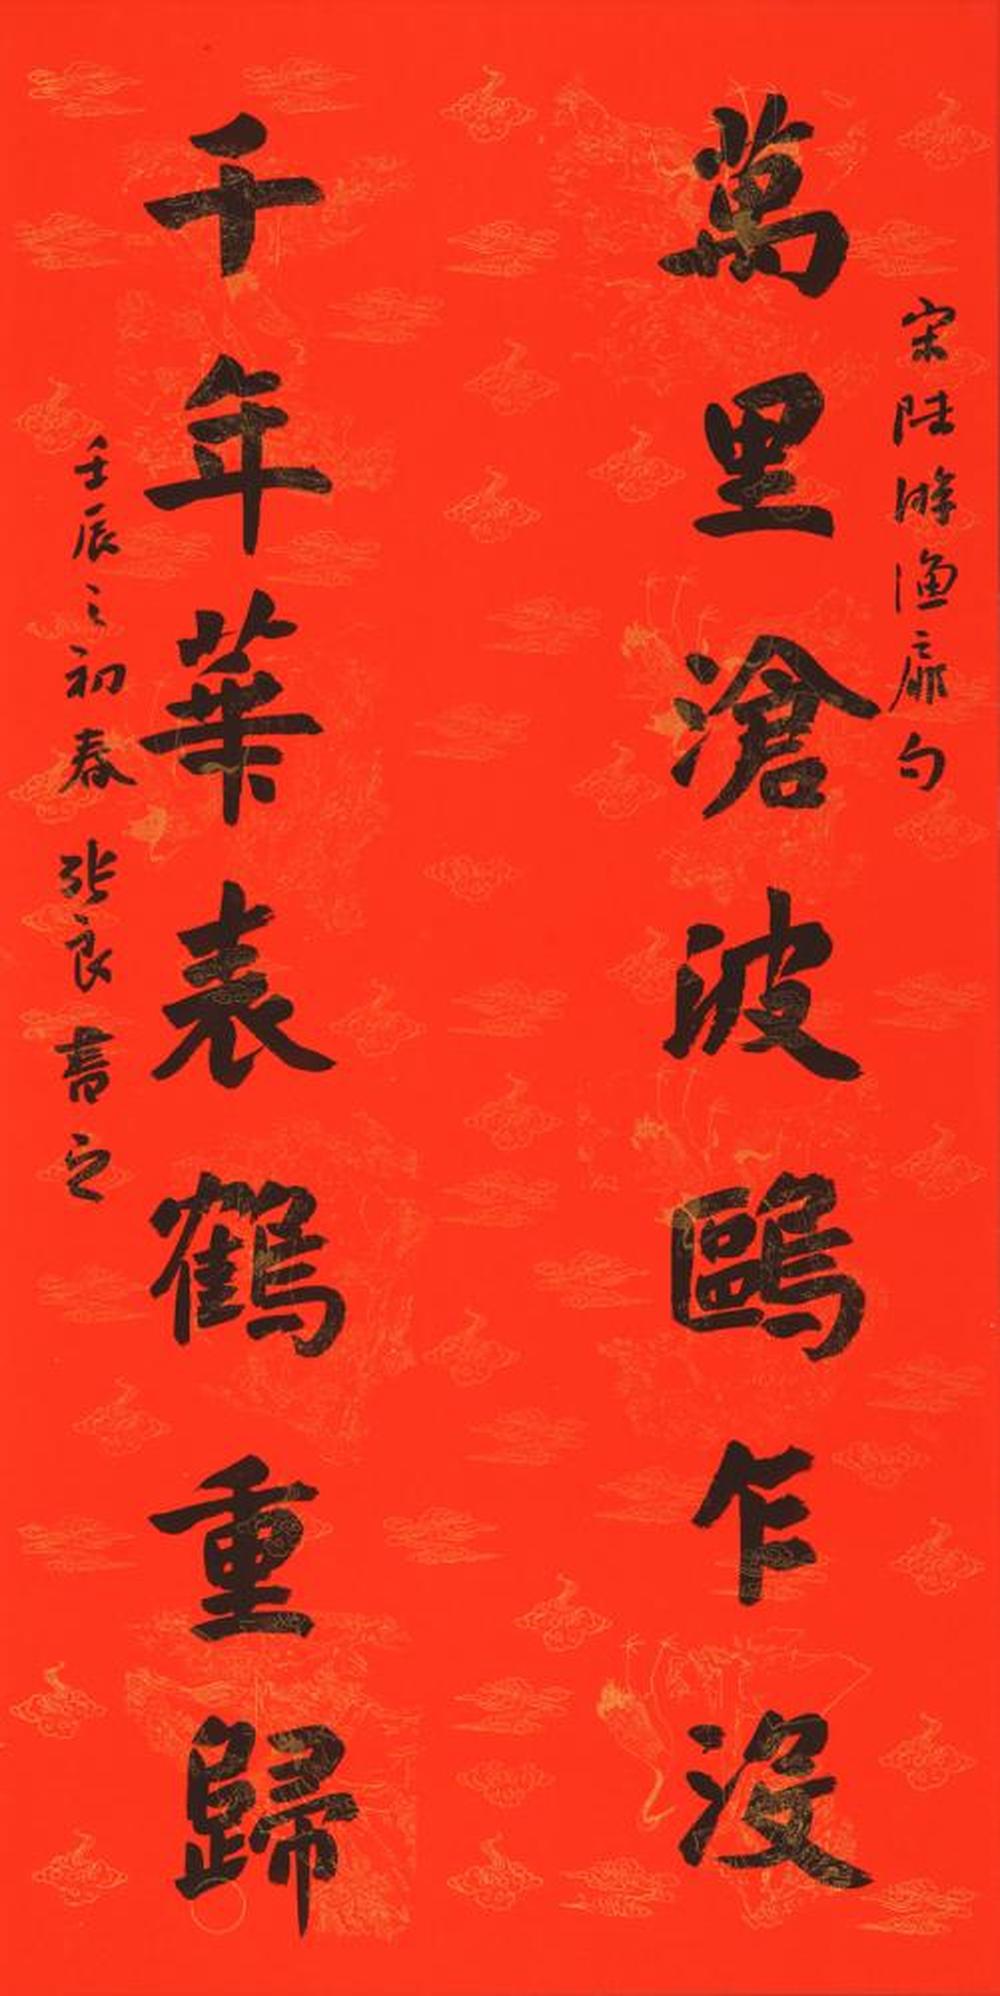 宋陸游漁扉句
萬里滄波鷗乍沒
千年華表鶴重歸
壬辰之初春張良書之